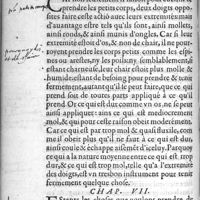 prendre les petits corps, deux doigts oppo-
sites faire ceste actiō auec leurs extremitez mais
d'autant estre tels qu'ils sont, ainsi mollets,
ainsi ronds, & ainsi munis d'ongles. Car si leur
extremité estoit d'os, & non de chair, il ne pour-
royent prendre les corps petits comme les espi-
nes ou arestes, ny les poils,
estant charneuse, leur chair estoit plus molle &
humide estant de besoing pour prendre & tenir
fermement, que ce qui est prins de ce qui se
prend soit de toutes parts appliqué à ce qui
prend. Or ce qui est dur comme vn os, ne se peut
ainsi appliquer: ains ce qui est mediocrement
mol, & qui pour ceste cause obeit mediocrement.
Car ce qui est trop mol & quasi fluxile, com-
me il obeit plus qu'il ne faut à ce qui est dur,
ainsi coule & échappe aisemēt d'iceluy. Parquoy
ce qui a la nature moyenne entre ce qui est trop
dur, & ce qui est trop mol, telle qu'a l'extremité
des doigts, est vn tresbon instrument pour tenir
fermement quelque chose.
CHAP. VII.
les choses que voulons prendre de